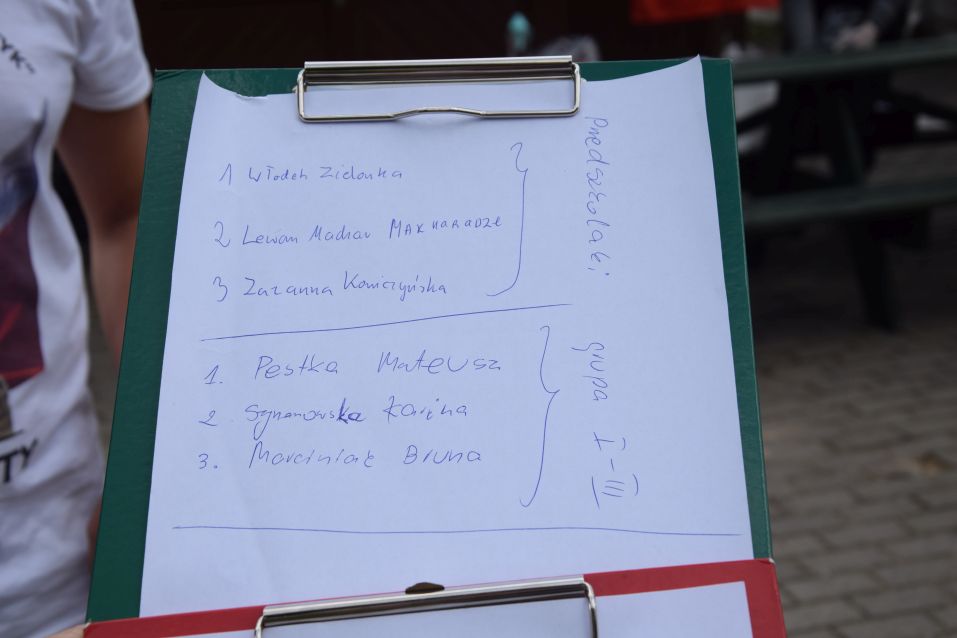 1 Włodek Zielonka
2 Lewan Madrav MAKHARADZE
3 Zuzanna Koniczyńska
Przedszkolaki
1. Pestka Mateusz
2. Szymanowska Karina
3. Marciniak Bruna
grupa I-III
TY